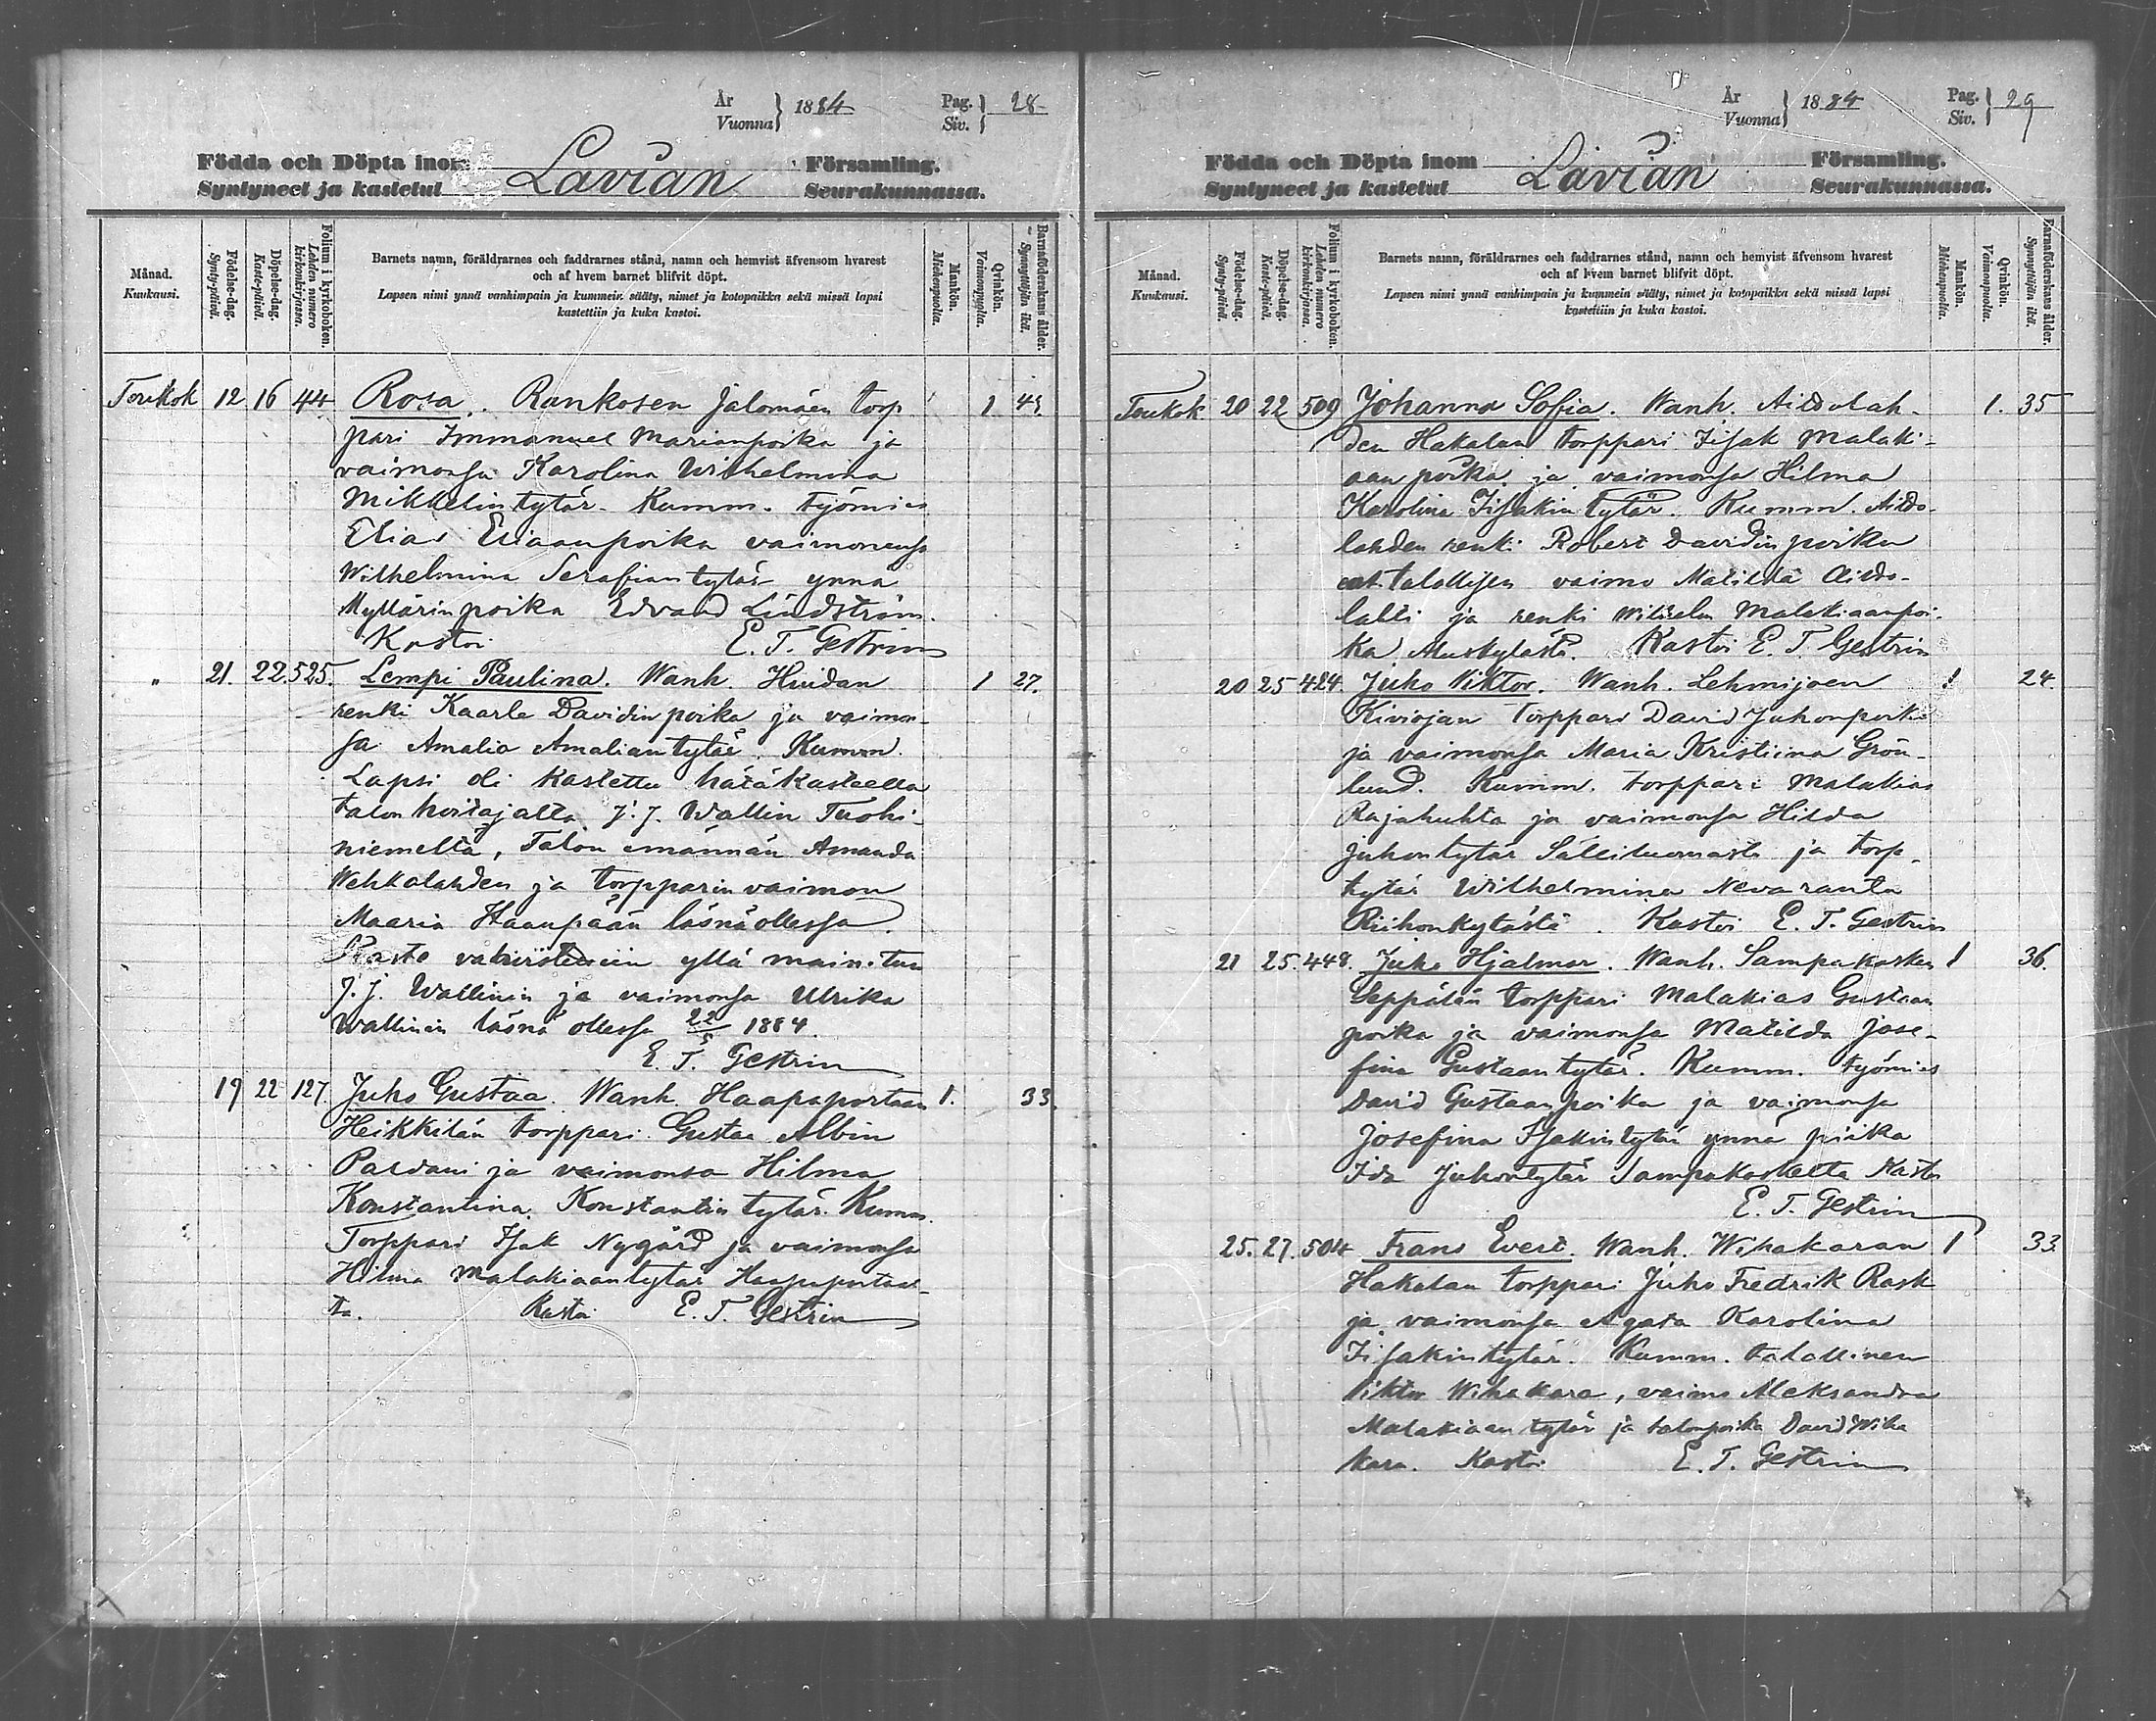 År
Vuonna } 1884 Pag.
Siv. } 28
Födda och Döpta inom Lavian Församling.
Syntyneet ja kastetut Seurakunnassa.
Månad.
Kuukausi.
Födelse-dag.
Synty-päivä.
Döpelse-dag.
Kaste-päivä.
Folium i kyrkoboken.
Lehden numero
kirkonkirjassa.
Barnets namn, föräldrarnes och faddrarnes stånd, namn och hemvist äfvensom hvarest
och af hvem barnet blifvit döpt.
Lapsen nimi ynnä vanhimpain ja kummein sääty, nimet ja kotopaikka sekä missä lapsi
kastettiin ja kuka kastoi.
Mankön.
Miehenpuolta.
Qvinkön.
Vaimonpuolta.
Barnaföderskans ålder.
Synnyttäjän ikä.
Toukok 12 16 44 Rosa. Runkosen Jalomäen torp 1
pari Immanuel Marianpoika ja
vaimonsa Karolina Wilhelmina
Mikkelintytär. Kumm. työmies
Elias Eliaanpoika vaimonensa
Wilhelmina Serafiantytär ynnä
Myllärinpoika Edvard Lindström.
Kastoi E. T. Gestrin
" 21. 22. 525. Lempi Paulina. Wanh. Huidan 1 27.
renki Kaarle Davidinpoika ja vaimon-
sa Amalia Amaliantytär. Kumm.
Lapsi oli kastettu hätäkasteella
talonhoitajalta J. J. Wallin Tuohi-
niemeltä, Talon emännän Amanda
Wehkalahden ja torpparinvaimon
Maaria Haanpään läsnäollessa.
Kaste vahvistettiin yllä mainitun
J. J. Wallinin ja vaimonsa Ulrika
Wallinin läsnä ollessa 22/5 1884.
E. T. Gestrin
19 22 127. Juho Gustaa. Wanh. Haapaportaan 1. 33.
Heikkilän torppari Gustaa Albin
ja vaimonsa Hilma
Konstantina Konstantintytär. Kumm.
Torppari Isak Nygård ja vaimonsa
Hilma Malakiaantytär Haapaportaas-
ta. Kastoi E. T. Gestrin
År
Vuonna } 1884 Pag.
Siv. } 29
Födda och Döpta inom Lavian Församling.
Syntyneet ja kastetut Seurakunnassa.
Månad.
Kuukausi.
Födelse-dag.
Synty-päivä.
Döpelse-dag.
Kaste-päivä.
Folium i kyrkoboken.
Lehden numero
kirkonkirjassa.
Barnets namn, föräldrarnes och faddrarnes stånd, namn och hemvist äfvensom hvarest
och af hvem barnet blifvit döpt.
Lapsen nimi ynnä vanhimpain ja kummein sääty, nimet ja kotopaikka sekä missä lapsi
kastettiin ja kuka kastoi.
Mankön.
Miehenpuolta.
Qvinkön.
Vaimonpuolta.
Barnaföderskans ålder.
Synnyttäjän ikä.
Toukok 20 22 509 Johanna Sofia. Wanh. Aidolah- 1. 35
den Hakalan torppari Iisak Malaki-
aanpoika ja vaimonsa Hilma
Karolina Iisakintytär. Kumm. Aido-
lahden renki Robert Davidinpoika
talollisen vaimo Matilda Aido-
lahti ja renki Wilhelm Malakiaanpoi-
ka Kastoi E. T. Gestrin
20 25 484. Juho Viktor. Wanh. Lehmijoen 1 24.
Kiviojan torppari David Juhonpoika
ja vaimonsa Maria Kristiina Grön-
lund. Kumm. torppari Malakias
Rajahuhta ja vaimonsa Hilda
Juhontytär ja torp.
tytär Wilhelmina Nevaranta
Riihonkylästä. Kastoi E. T. Gestrin
21 25. 448. Juho Hjalmar. Wanh. Sampakosken 1 36.
Seppälän torppari Malakias Gustaan
poika ja vaimonsa Matilda Jose-
fina Gustaantytär. Kumm. työmies
David Gustaanpoika ja vaimonsa
Josefina Isakintytär ynnä piika
Ida Juhontytär Sampakoskelta Kastoi
E. T. Gestrin
25. 27. 504 Frans Evert. Wanh. Wihakaran 1 33.
Hakalan torppari Juho Fredrik Rask
ja vaimonsa Agata Karolina
Iisakintytär. Kumm. talollinen
Viktor Wihakara, vaimo Aleksandra
Malakiaantytär ja talonpoika David Wiha
kara. Kastoi E. T. Gestrin